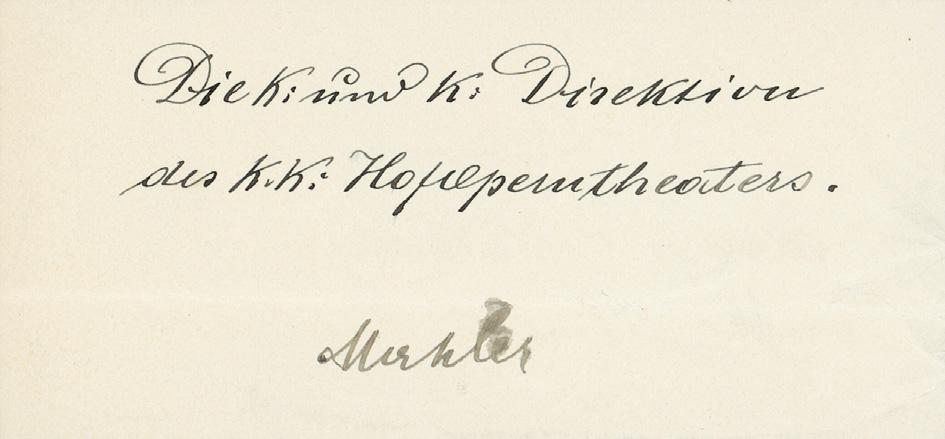 Die K: und K: Direktion
des K. K: Hofoperntheaters.
Mahler